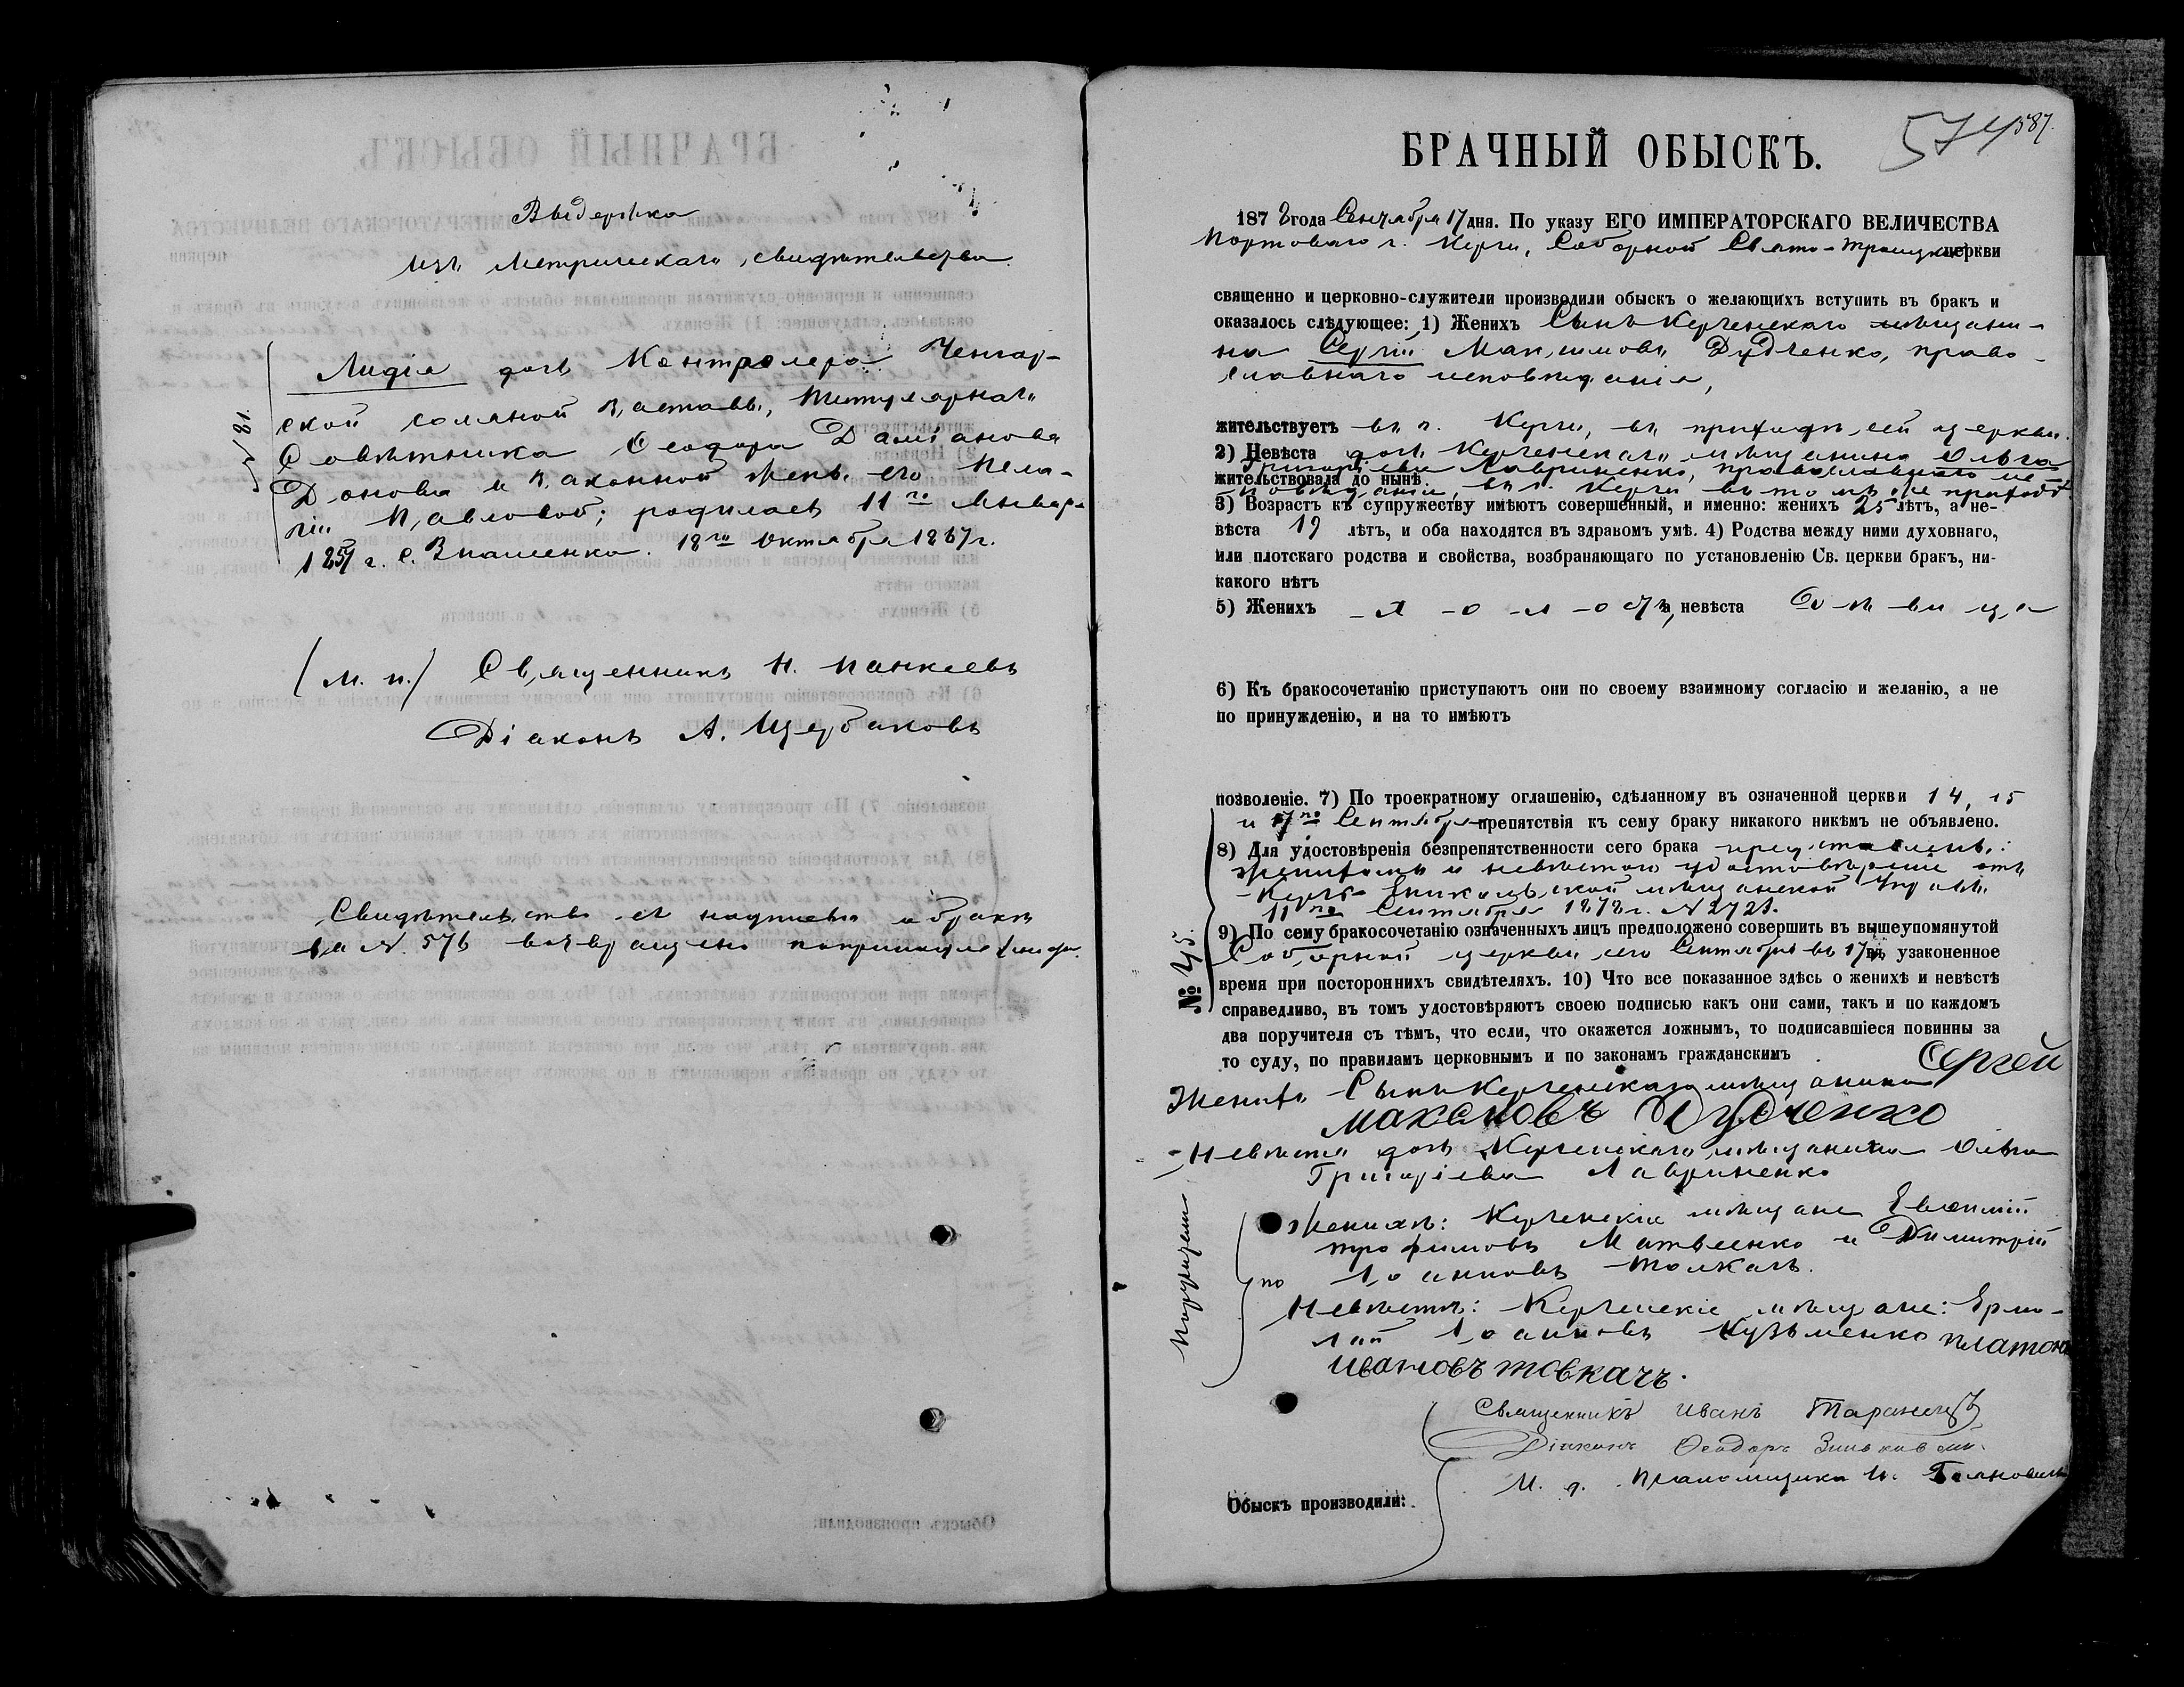 Выдержка
изъ Метрическаго свидѣтельства.
№ 81
Лидія дочь Контролера Чонгар-
ской соляной заставы, Титулярнаго
Совѣтника Ѳеодора Даміанова
Донова и законной жены его Пела-
гіи Павловой; родилась 11го Январ.
185 г. с. Знаменка. 18го Октября 1867 г.
(М. п.) Священникъ Н. Панкеевъ
Діаконъ А. Щербаковъ
Свидѣтельство съ надписью о бракѣ
за № 576 возвращено
574 587.
БРАЧНЫЙ ОБЫСКЪ.
1878 года Сентября 17 дня. По указу ЕГО ИМПЕРАТОРСКАГО ВЕЛИЧЕСТВА
Портоваго г. Керчи, Соборной Свято-Троицкой церкви
священно и церковно-служители производили обыскъ о желающихъ вступить въ бракъ и
оказалось слѣдующее: 1) Женихъ Сынъ Керченскаго мѣщани-
на Сергій Максимовъ Дудченко, право-
славнаго исповѣданія,
жительствуетъ въ г. Керчи, въ приходѣ сей церкви.
2) Невѣста дочь Керченскаго мѣщанина Ольга
Григоріева Лавриненко, православнаго ис-
жительствовала до нынѣ
повѣданія, въ г. Керчи въ томъ же приходѣ
3) Возрастъ къ супружеству имѣютъ совершенный, и именно: женихъ 25 лѣтъ, а не-
вѣста 19 лѣтъ, и оба находятся въ здравомъ умѣ. 4) Родства между ними духовнаго,
или плотскаго родства и свойства, возбраняющаго по установленію Св. церкви бракъ, ни-
какого нѣтъ
5) Женихъ - х - о - л - о стъ, невѣста дѣ-ви ца
6) Къ бракосочетанію приступаютъ они по своему взаимному согласію и желанію, а не
по принужденію, и на то имѣютъ
позволеніе. 7) По троекратному оглашенію, сдѣланному въ означенной церкви 14, 15
и 17го Сентября препятствія къ сему браку никакого никѣмъ не объявлено.
8) Для удостовѣренія безпрепятственности сего брака представлены:
женихомъ и невѣстою удостовѣреніе отъ
Керчь-Еникольской мѣщанской Управы
11го Сентября 1878 г. № 2721.
№ 45.
9) По сему бракосочетанію означенныхъ лицъ предположено совершить въ вышеупомянутой
Соборной церкви сего Сентября въ 17 въ узаконенное
время при постороннихъ свидѣтеляхъ. 10) Что все показанное здѣсь о женихѣ и невѣстѣ
справедливо, въ томъ удостовѣряютъ своею подписью какъ они сами, такъ и по каждомъ
два поручителя съ тѣмъ, что если, что окажется ложнымъ, то подписавшіеся повинны за
то суду, по правиламъ церковнымъ и по законамъ гражданскимъ
Женихъ Сынъ Керченскаго мѣщанина Сергей
Дудченко
Невѣста дочь Керченскаго мѣщанина Ольга
Григоріева Лавриненко
Поручители
по
Женихѣ: Керченскіе мѣщане Евѳимій
Трофимовъ Матвеенко и Димитрій
Іоанновъ Толкачъ.
Невѣстѣ: Керченскіе мѣщане: Ермо-
лай Іоанновъ Кузьменко платонъ
ивановъ товкачъ.
Священникъ Иванъ Таранецъ
Діаконъ Ѳеодоръ
И. д. Псаломщика
Обыскъ производили: